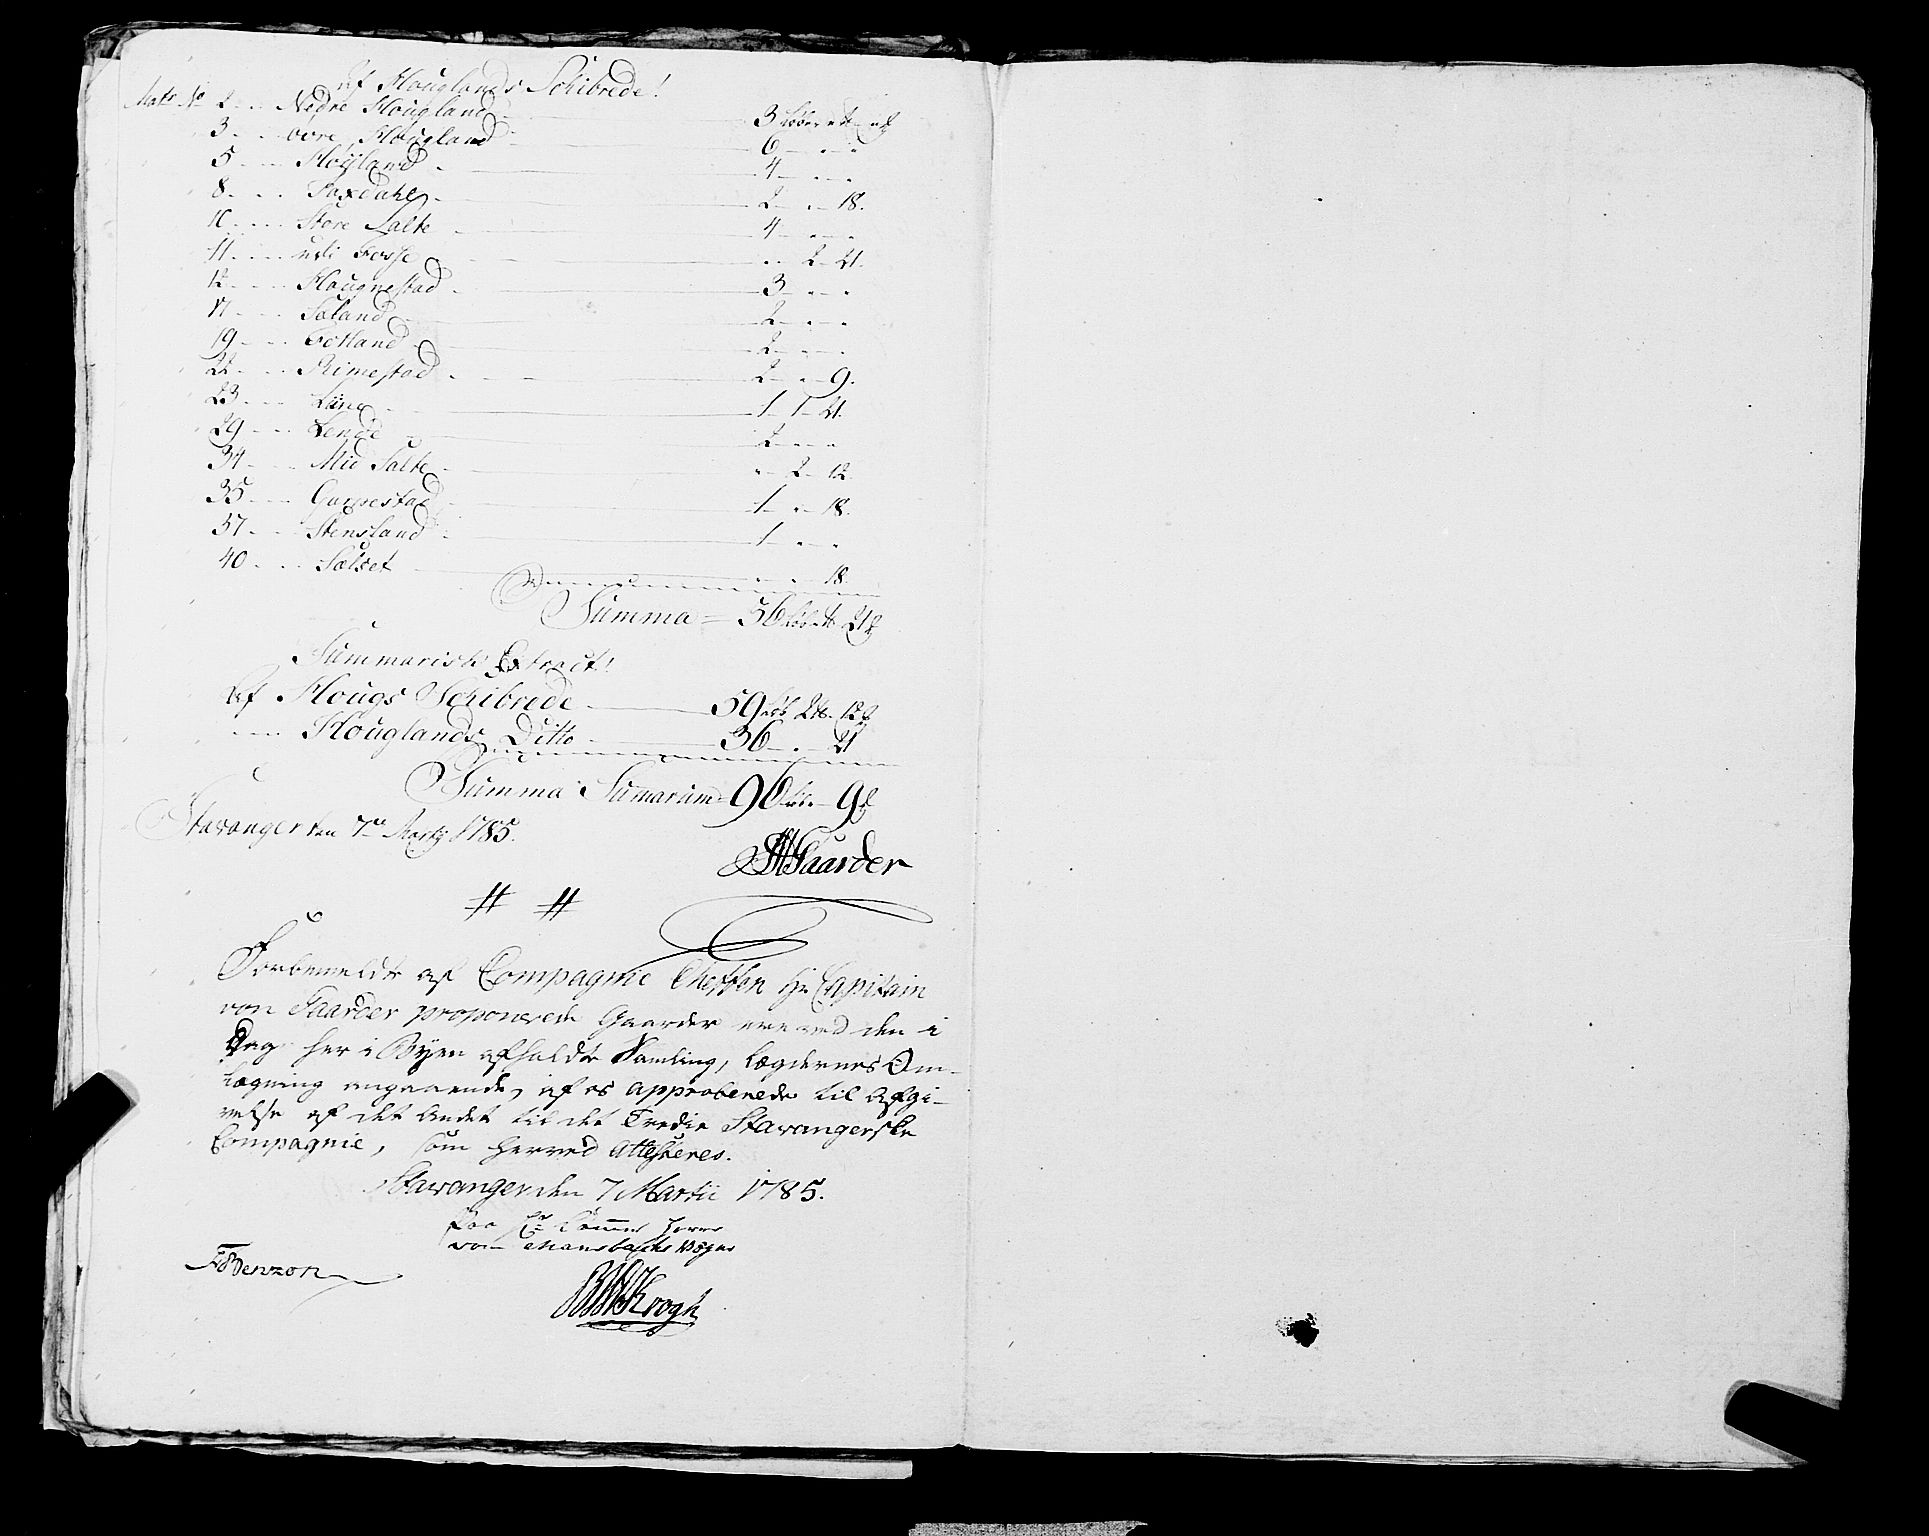 af Houglands Schibrede!
Matr No 2 Nedre Hougland 3
3 ovre Hougland 6
5 Høÿland 4
8 Taxdahl 2 18.
10 Store Salte 4
11 udi Fosse 2 21.
12 Hougnestad 3
17 Taland 2
19 Fotland 2
22 Rimestad 2 9.
23 Line 1 1 21.
29 Lende 2
34 Mid Salte 2 12.
35 Garpestad 1 18.
37 Stensland 1
40 Sælset 18.
Summa = 36 21
Summarisk Extract!
af Hougs Schibrede 59 2 12
Houglands Ditto 36 21
Summa Sumarum 96 9
Stavanger den 7de Martij 1785.
Saarder
# #
Forbemeldte af Compagnie Cheffen Hr Capitain
von Saarder proponerede Gaarder ere ved den i
Dag her i Byen afholdte Samling, lægdernes Om-
lægning angaaende, af os approberede til Afgi-
velse af det Andet til det Tredie Stavangerske
Compagnie, som herved Attesteres.
Stavanger den 7 Martii 1785.
Paa Hr Herres
von Mansbachs Vegne
Benzon
Krogh